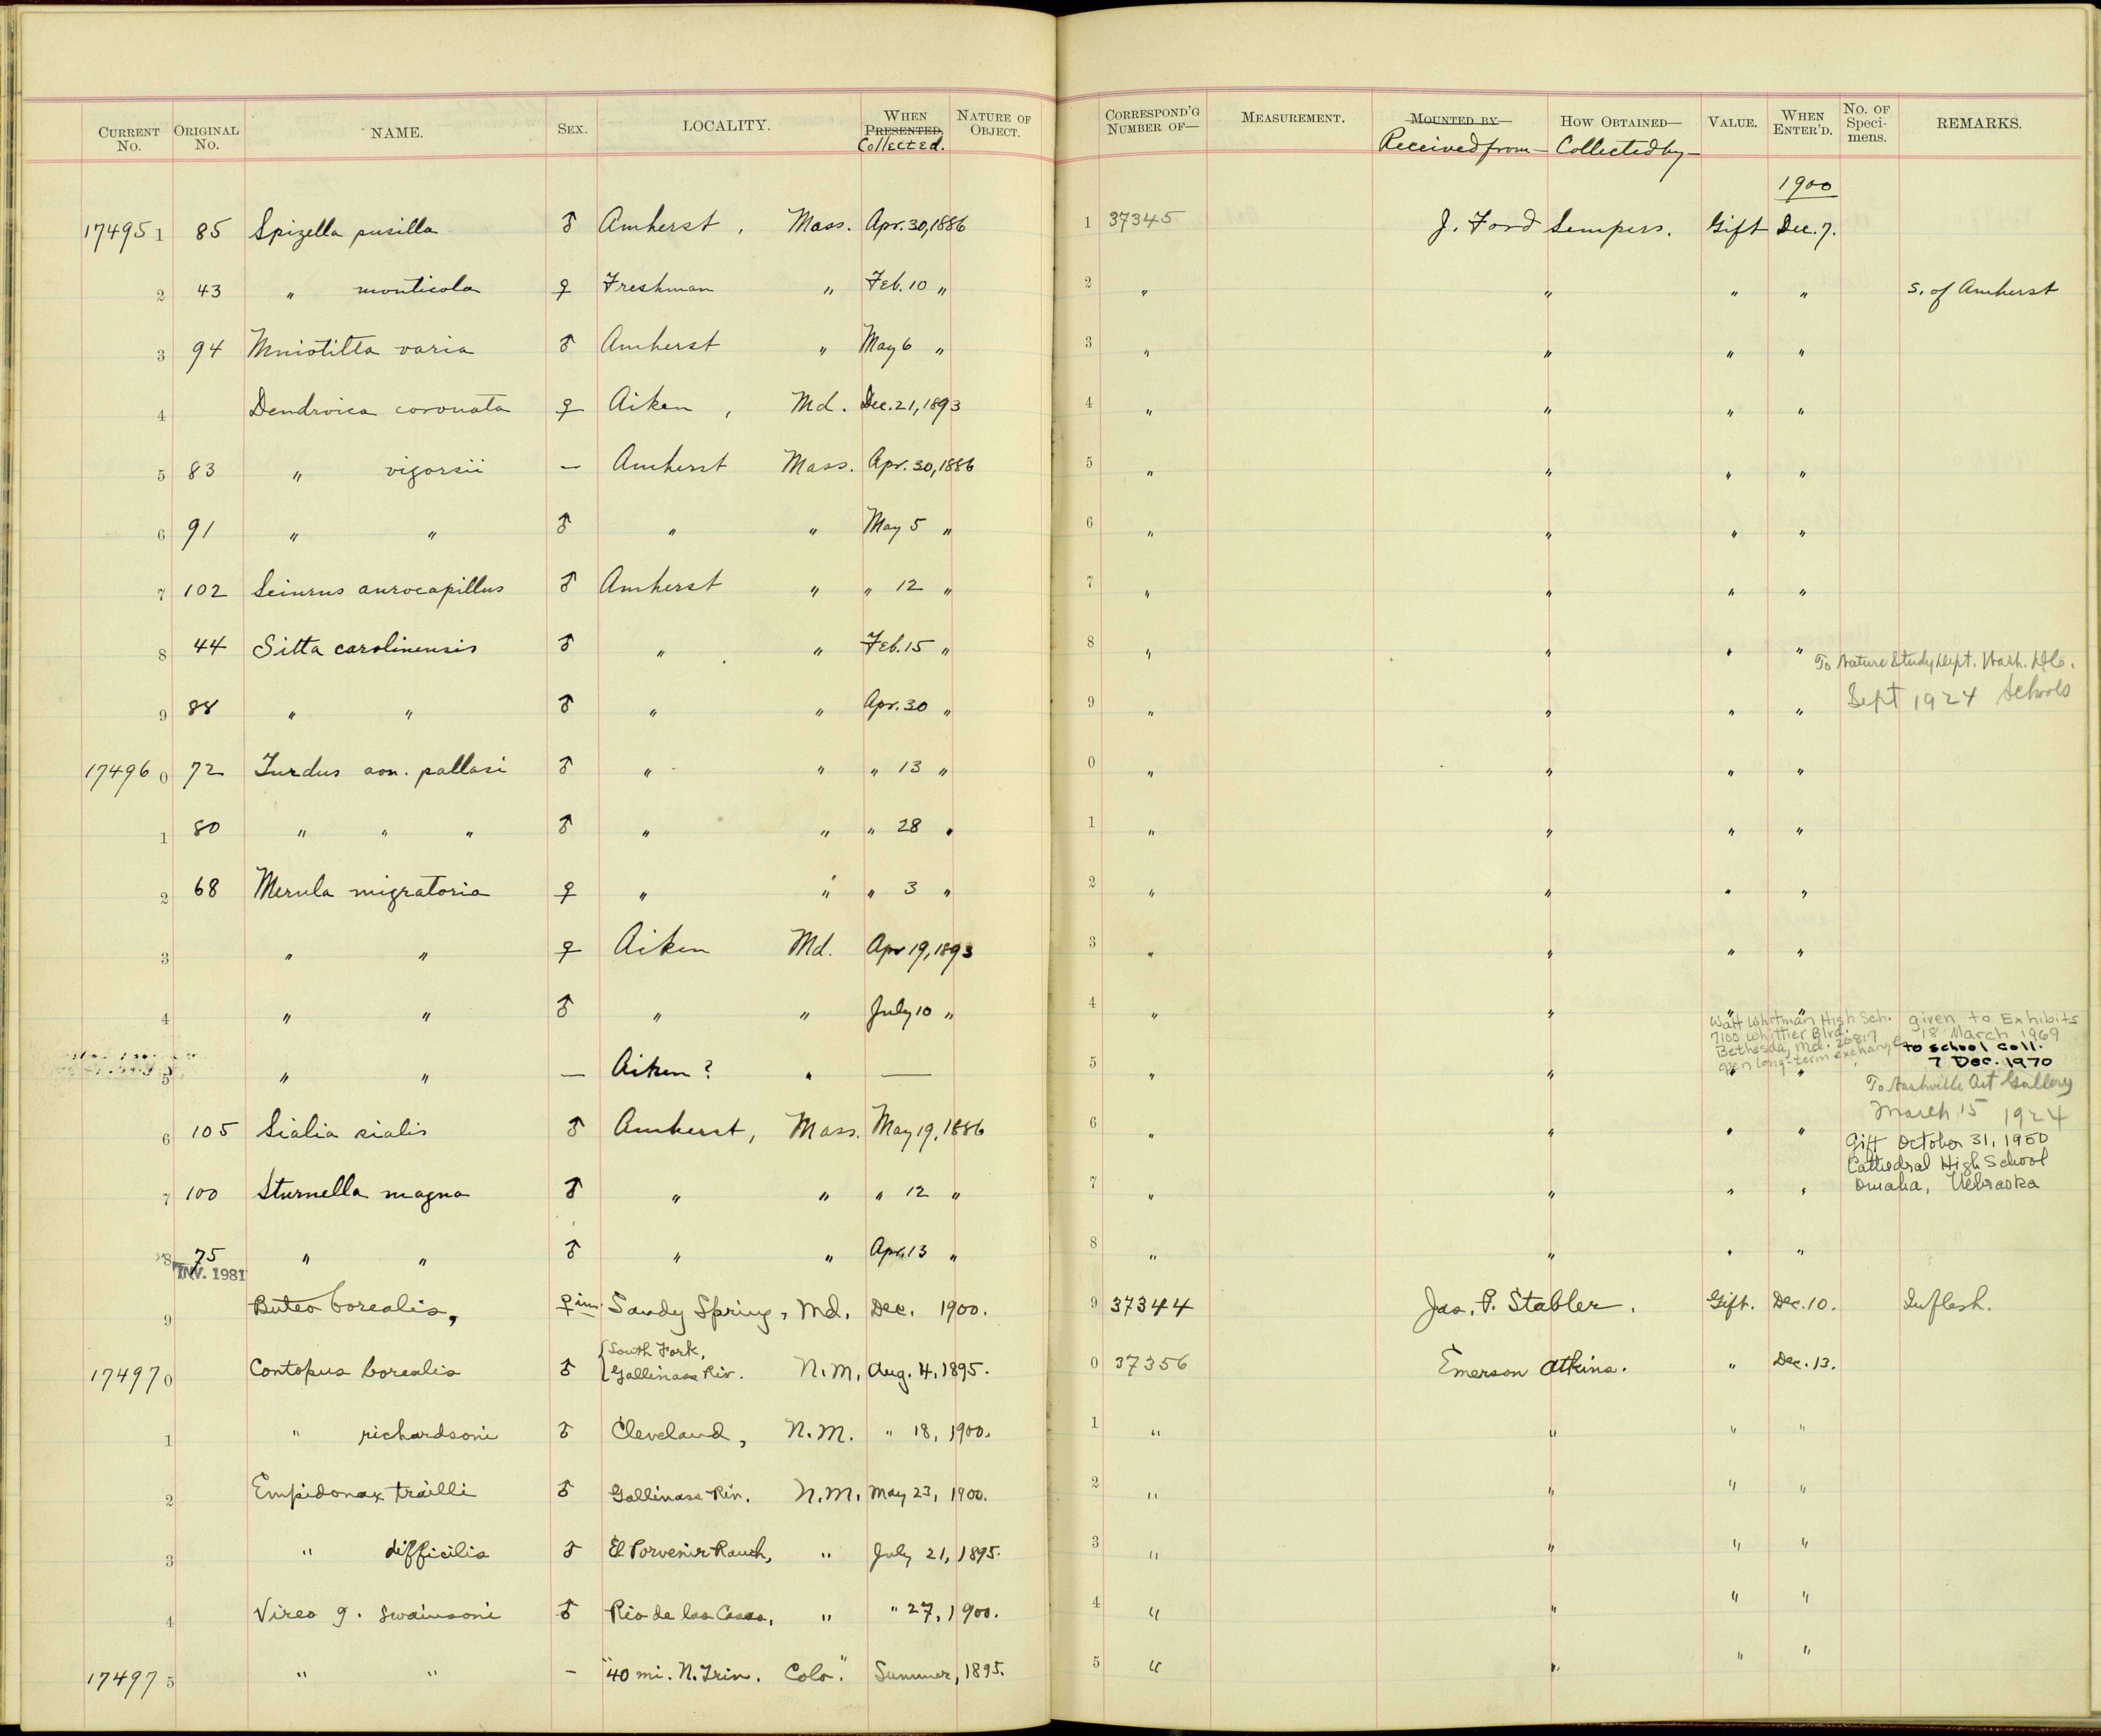 CURRENT No. ORIGINAL No. NAME. SEX. LOCALITY. WHEN PRESENTED. Collected. NATURE OF OBJECT. CORRESPOND'G NUMBER OF— MEASUREMENT. MOUNTED BY— Received from— HOW OBTAINED— Collected by— VALUE. WHEN ENTER'D. No. OF Speci-mens. REMARKS.
1900
174951 85 Spizella pusilla ♂ Amherst, Mass. Apr. 30, 1886 1 37345 J. Ford Sempers. Gift Dec. 7.
2 43 " monticola ♀ Freshman " Feb. 10 " 2 " " " " S. of Amherst
3 94 Mniotilta varia ♂ Amherst " May 6 " 3 " " " "
4 Dendroica coronata ♀ Aiken, Md. Dec. 21, 1893 4 " " " "
5 83 " vigorsii — Amherst Mass. Apr. 30, 1886 5 " " " "
6 91 " " ♂ " " May 5 " 6 " " " "
7 102 Seiurus aurocapillus ♂ Amherst " " 12 " 7 " " " "
8 44 Sitta carolinensis ♂ " " Feb. 15 " 8 " " " "
To Nature Study Dept. Wash. D.C. Schools
Sept 1924
9 88 " " ♂ " " Apr. 30 " 9 " " " "
174960 72 Turdus aon. pallasi ♂ " " " 13 " 0 " " " "
1 80 " " " ♂ " " " 28 " 1 " " " "
2 68 Merula migratoria ♀ " " " 3 " 2 " " " "
3 " " ♀ Aiken Md. Apr 19, 1893 3 " " " "
4 " " ♂ " " July 10 " 4 " " " "
Walt Whitman High Sch.
7100 Whittier Blvd.
Bethesda, Md. 20817
open long-term exchange
given to Exhibits
18 March 1969
to school coll.
7 Dec. 1970
5 " " — Aiken? " — 5 " " " "
To Nashville Art Gallery
March 15 1924
6 105 Sialia sialis ♂ Amherst, Mass. May 19, 1886 6 " " " "
Gift October 31, 1950
Cathedral High School
Omaha, Nebraska
7 100 Sturnella magna ♂ " " " 12 " 7 " " " "
8 75 " " ♂ " " Apr. 13 " 8 " " " "
INV. 1981
9 Buteo borealis, ♀ im. Sandy Spring, Md. Dec. 1900. 9 37344 Jas. P. Stabler. Gift. Dec. 10. In flesh.
174970 Contopus borealis ♂ South Fork, Gallinas Riv. N.M. Aug. 4, 1895. 0 37356 Emerson Atkins. " Dec. 13.
1 " richardsoni ♂ Cleveland, N.M. " 18, 1900. 1 " " " "
2 Empidonax trailli ♂ Gallinas Riv. N.M. May 23, 1900. 2 " " " "
3 " difficilis ♂ El Porvenir Ranch, " July 21, 1895. 3 " " " "
4 Vireo g. swainsoni ♂ Rio de las Casas, " " 27, 1900. 4 " " " "
174975 " " – "40 mi. N. Trin. Colo." Summer, 1895. 5 " " " "